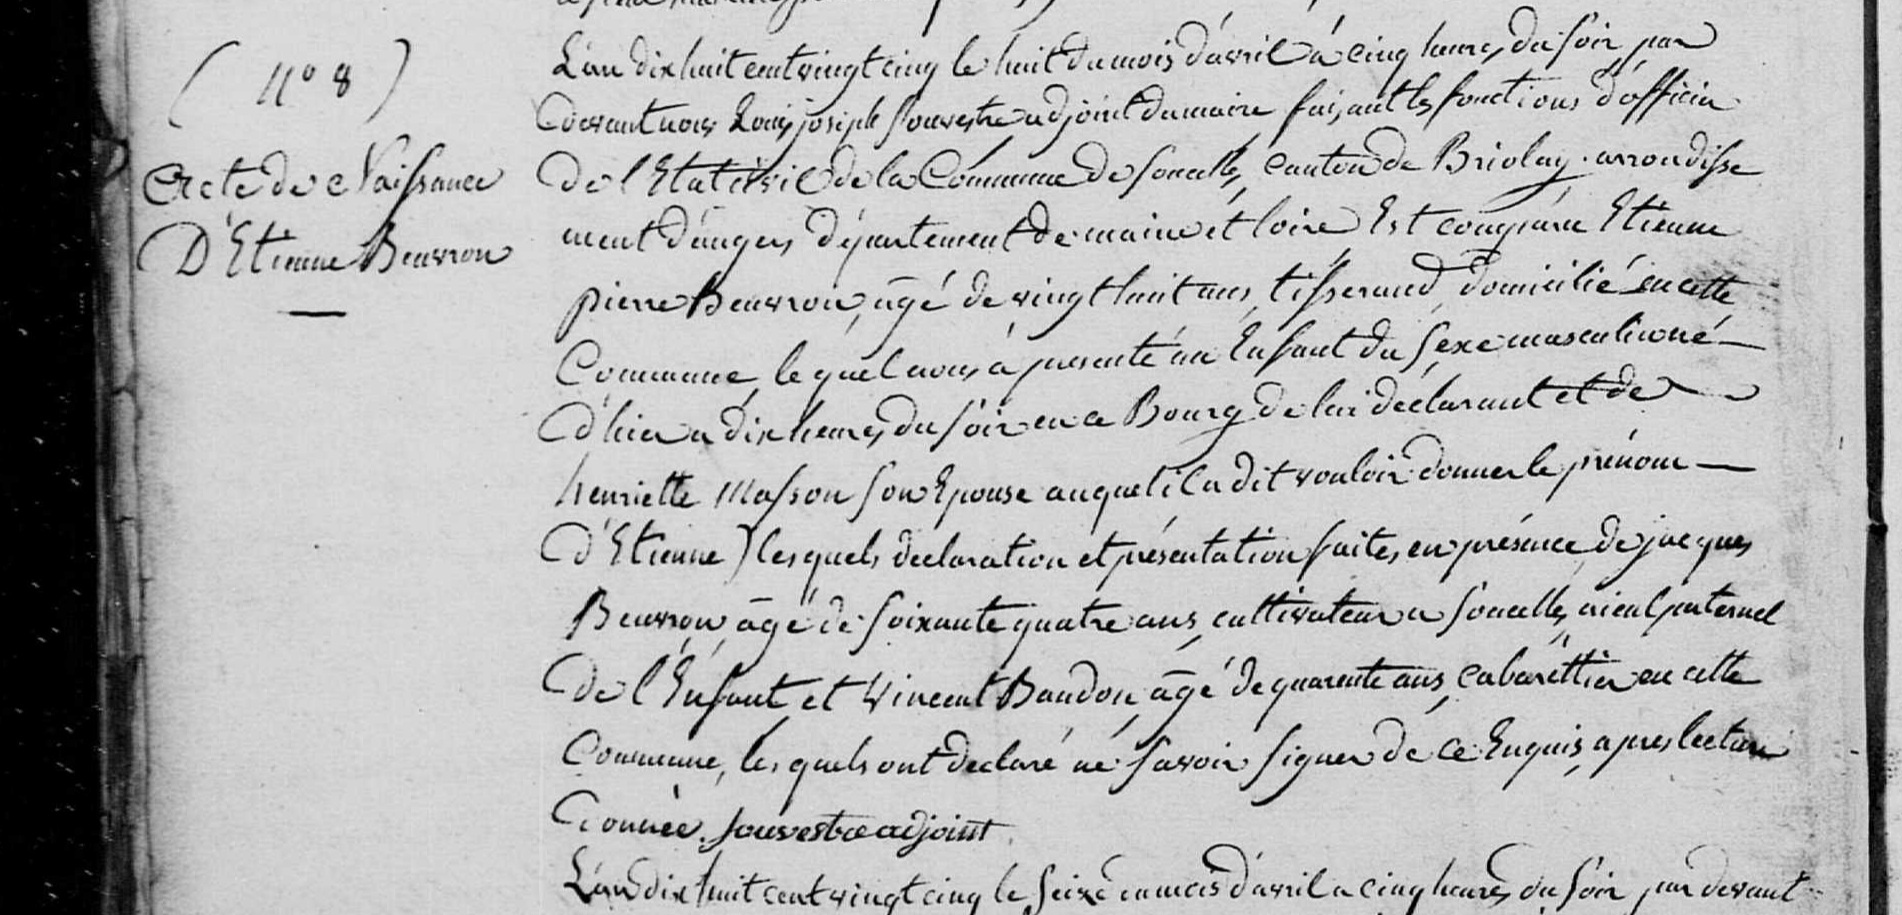 (N° 8)
Acte de Naissance
D'Etienne Beuvron
L'an dix huit cent vingt cinq le huit du mois d'avril à cinq heures du soir, par
devant nous Louis joseph Souvestre adjoint du maire faisant les fonctions d'officier
de l'Etat civil de la Commune de Soucelles, canton de Briolay, arrondisse
ment d'angers, département de maine et loire Est comparu Etienne
pierre Beuvron, âgé de vingt huit ans, tisserand, domicilié en cette
Commune, lequel nous à presenté un Enfant du sexe masculin né —
d'hier a dix heures du soir en ce Bourg de lui déclarant et de —
henriette Masson son Epouse auquel il a dit vouloir donner le prénom —
d'Etienne) lesquels declaration et présentation faites en présence de jacques
Beuvron, âgé de soixante quatre ans, cultivateur a Soucelles, aieul paternel
de l'Enfant, et Vincent Baudon, âgé de quarante ans, cabarettier en cette
Commune, lesquels ont declaré ne savoir signer de ce Enquis, apres lecture
donnée. Souvestre adjoint
L'an dix huit cent vingt cinq le seize du mois d'avril a cinq heures du soir, par devant